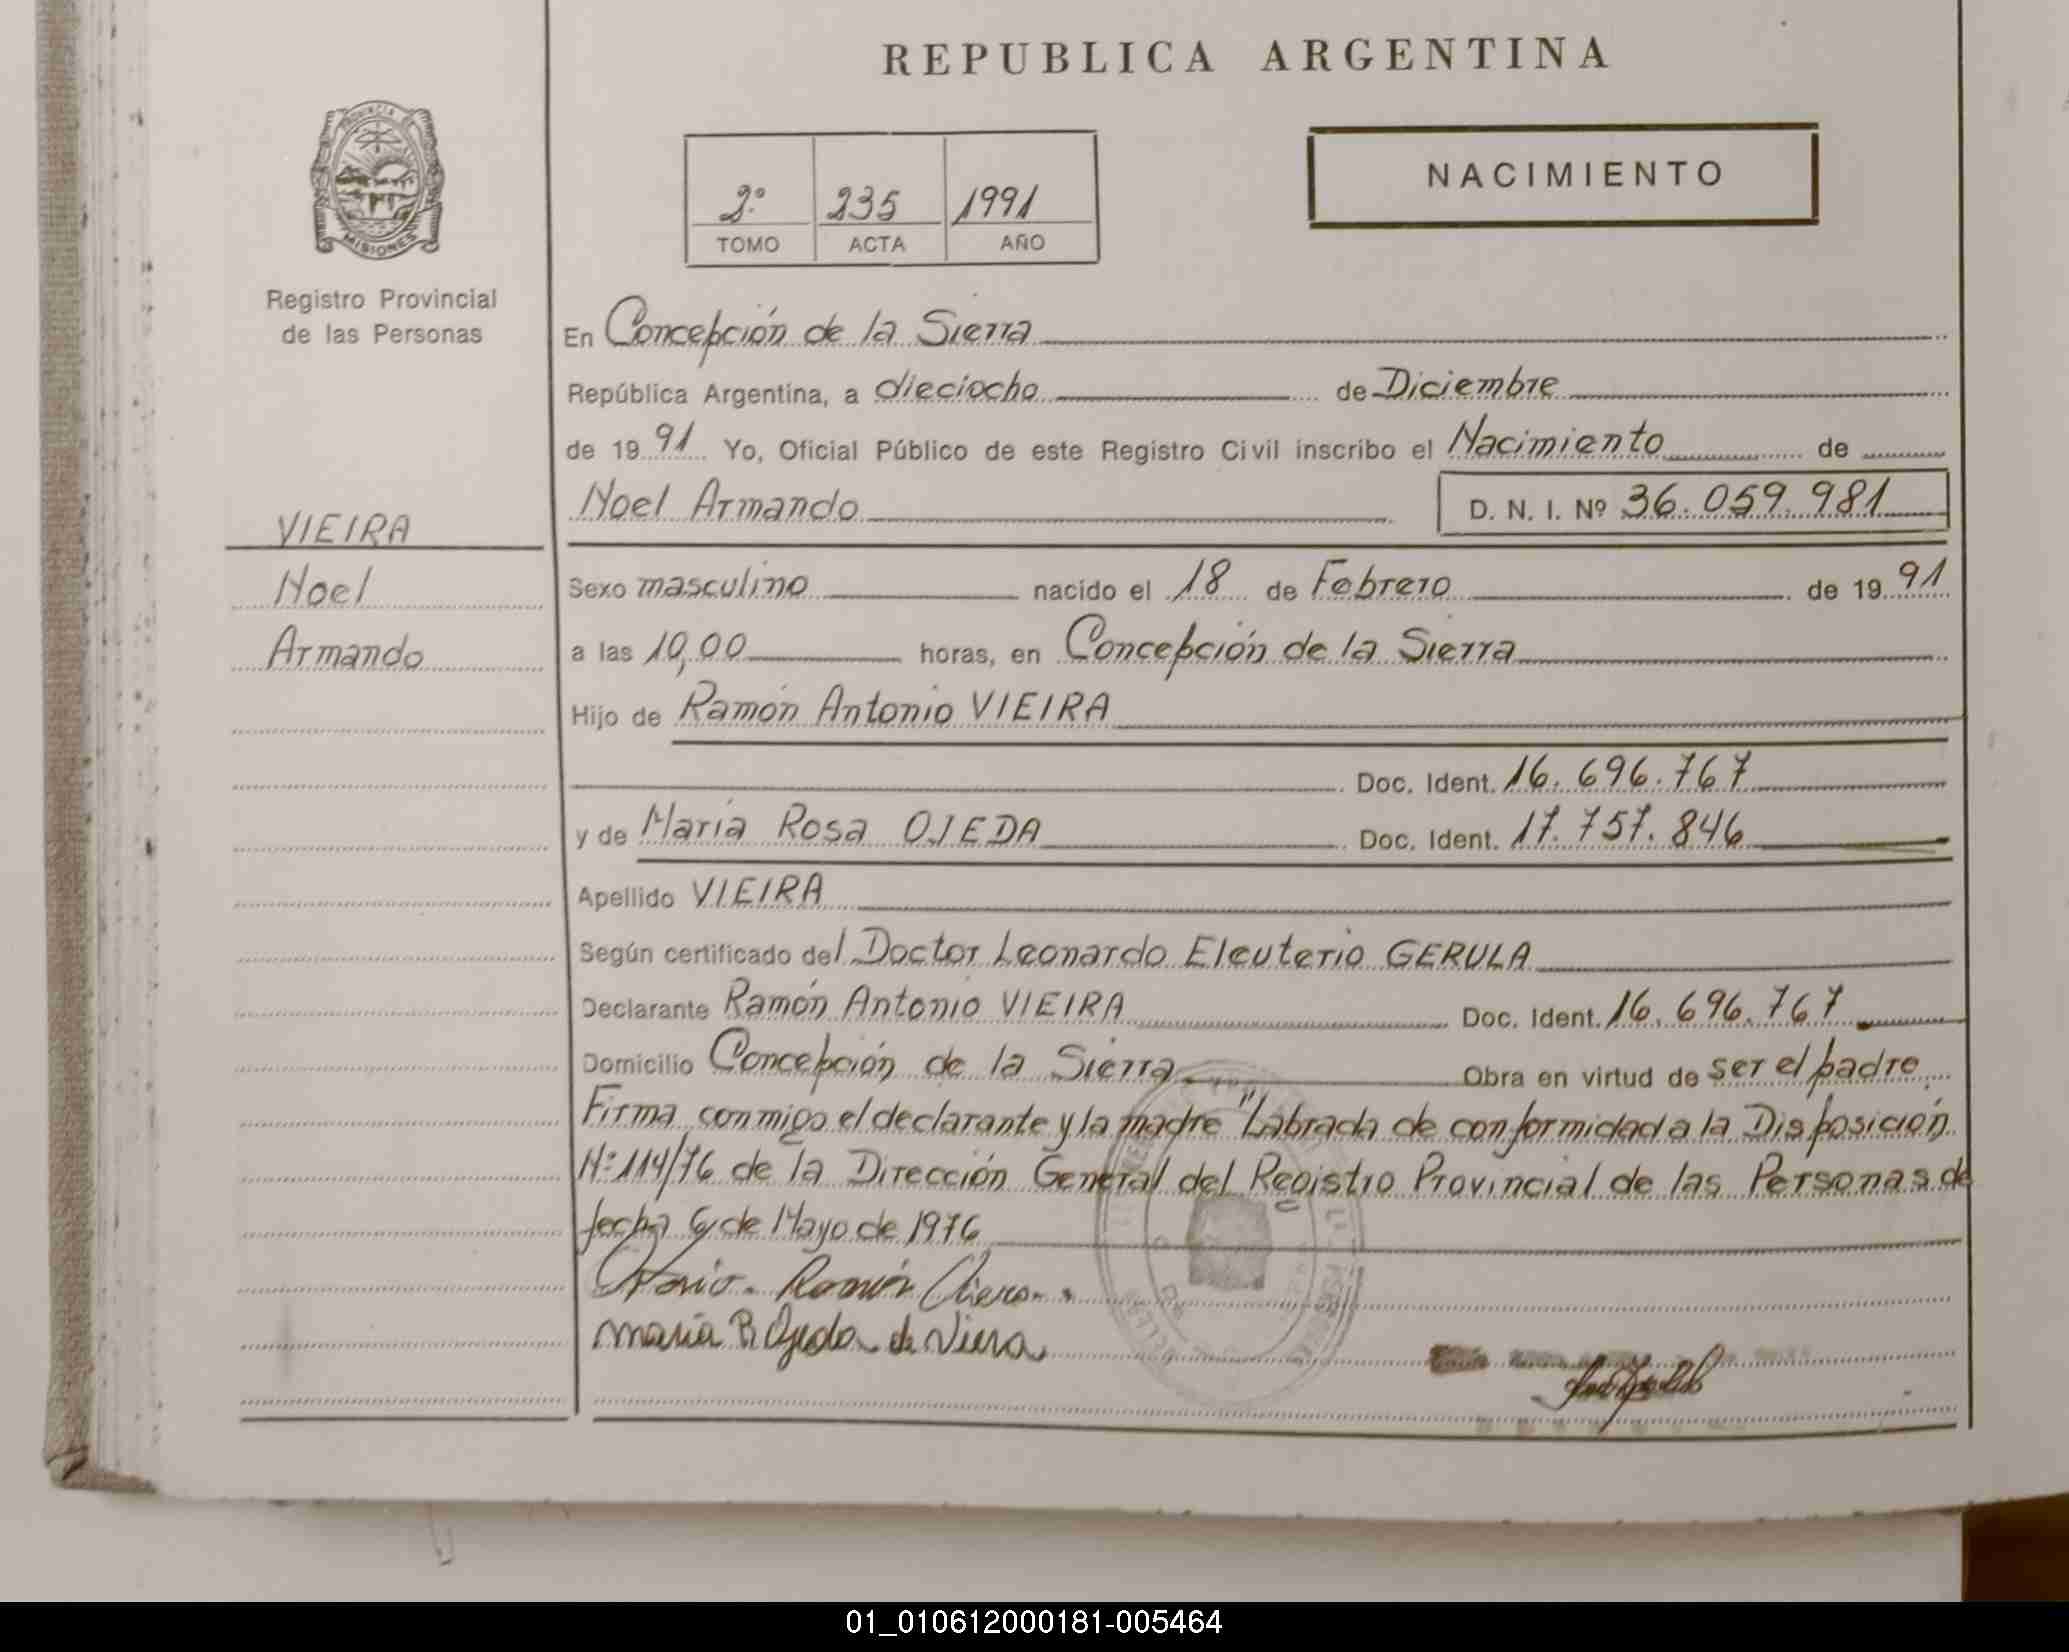 REPUBLICA ARGENTINA
PROVINCIA
MISIONES
Registro Provincial
de las Personas
2º 235 1991
TOMO ACTA AÑO
NACIMIENTO
En Concepción de la Sierra
República Argentina, a dieciocho de Diciembre
de 1991 Yo, Oficial Público de este Registro Civil inscribo el Nacimiento de
Noel Armando D. N. I. Nº 36.059.981
VIEIRA
Noel
Armando
Sexo masculino nacido el 18 de Febrero de 1991
a las 10,00 horas, en Concepción de la Sierra
Hijo de Ramón Antonio VIEIRA
Doc. Ident. 16.696.767
y de María Rosa OJEDA Doc. Ident. 17.757.846
Apellido VIEIRA
Según certificado del Doctor Leonardo Eleuterio GERULA
Declarante Ramón Antonio VIEIRA Doc. Ident. 16.696.767
Domicilio Concepción de la Sierra Obra en virtud de ser el padre
Firma conmigo el declarante y la madre "Labrada de conformidad a la Disposición
Nº 114/76 de la Dirección General del Registro Provincial de las Personas de
fecha 6 de Mayo de 1976
Ramón
María R Ojeda de Viera
01_010612000181-005464